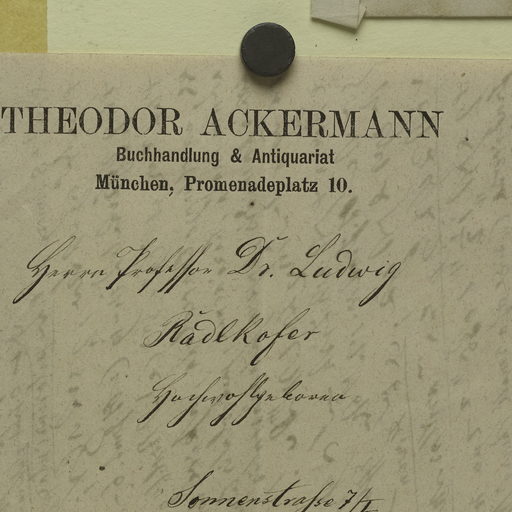 THEODOR ACKERMANN
Buchhandlung & Antiquariat
München, Promenadeplatz 10.
Herrn Professor Dr. Ludwig
Radlkofer
Hochwohlgeboren
Sonnenstraße 7/I